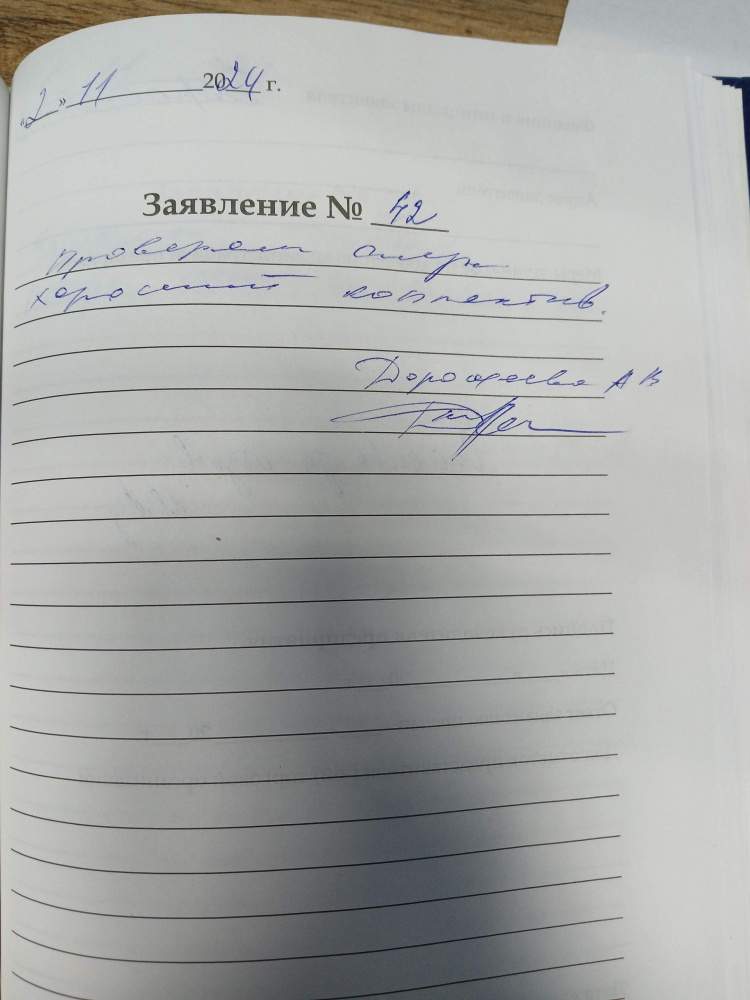 «2» 11 2024 г.
Заявление № 42
Провером
хороший коллектив.
Дорофеева А В